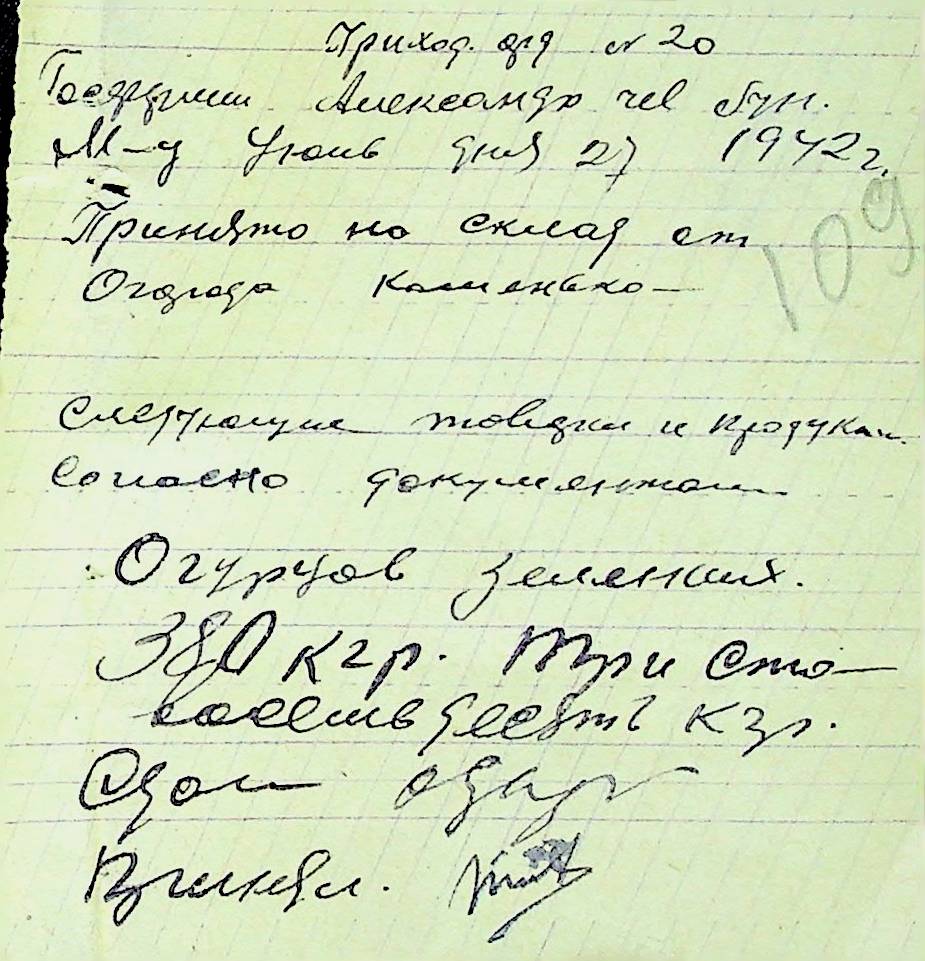 Приход. орд № 20
Александр
М-ц Июнь дня 27 1942 г.
109
Принято на склад от
Огорода
Следующие и продукты
Согласно документам
Огурцов зеленых.
380 кгр. Три сто
восемьдесят кгр.
Сдал
Принял.